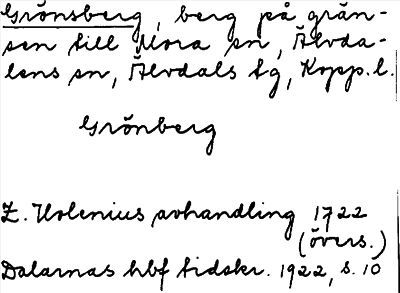 Grönsberg, berg på grän-
sen till Mora sn, Älvda-
lens sn, Älvdals tg, Kopp.l.
Grönberg
Z. Holenius avhandling 1722
(övers.)
Dalarnas hbf tidskr. 1922, s. 10